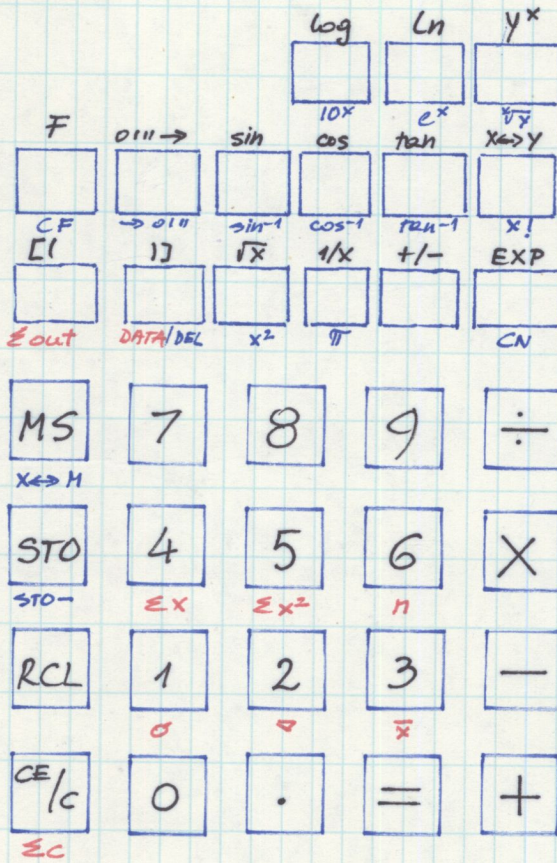 log Ln Y^x
10^x e^x ˣ√y
F o ı ıı → sin cos tan X↔Y
CF → o ı ıı sin⁻¹ cos⁻¹ tan⁻¹ x!
[( )] √x 1/x +/- EXP
Σout DATA/DEL x² π CN
MS 7 8 9 ÷
X↔M
STO 4 5 6 X
STO- Σx Σx² n
RCL 1 2 3 −
x̄
CE/C 0 . = +
ΣC